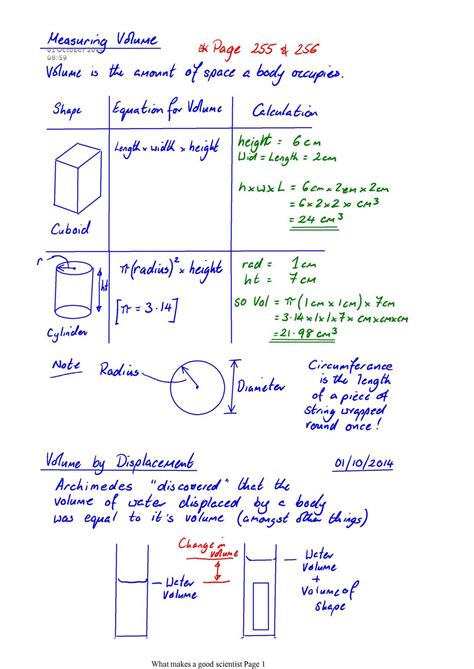 Measuring Volume
* Page 255 & 256
01 October 20
08:59
Volume is the amount of space a body occupies.
Shape
Equation for Volume
Calculation
Length x width x height
height = 6 cm
Wid = Length = 2cm
h x w x L = 6cm x 2cm x 2cm
= 6 x 2 x 2 x cm³
= 24 cm³
Cuboid
r
ht
π(radius)² x height
[π = 3.14]
rad = 1cm
ht = 7cm
so Vol = π(1cm x 1cm) x 7cm
= 3.14 x 1 x 1 x 7 x cm x cm x cm
= 21.98 cm³
Cylinder
Note
Radius
Diameter
Circumferance
is the length
of a piece of
string wrapped
round once!
Volume by Displacement
01/10/2014
Archimedes "discovered" that the
volume of water displaced by a body
was equal to it's volume (amongst other things)
Change in
volume
Water
volume
Water
volume
+
Volume of
shape
What makes a good scientist Page 1